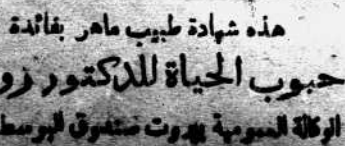 هذه شهادة طبيب ماهر بفائدة
حبوب الحياة للدكتور زو
الوكالة العمومية بيروت صندوق البوسط